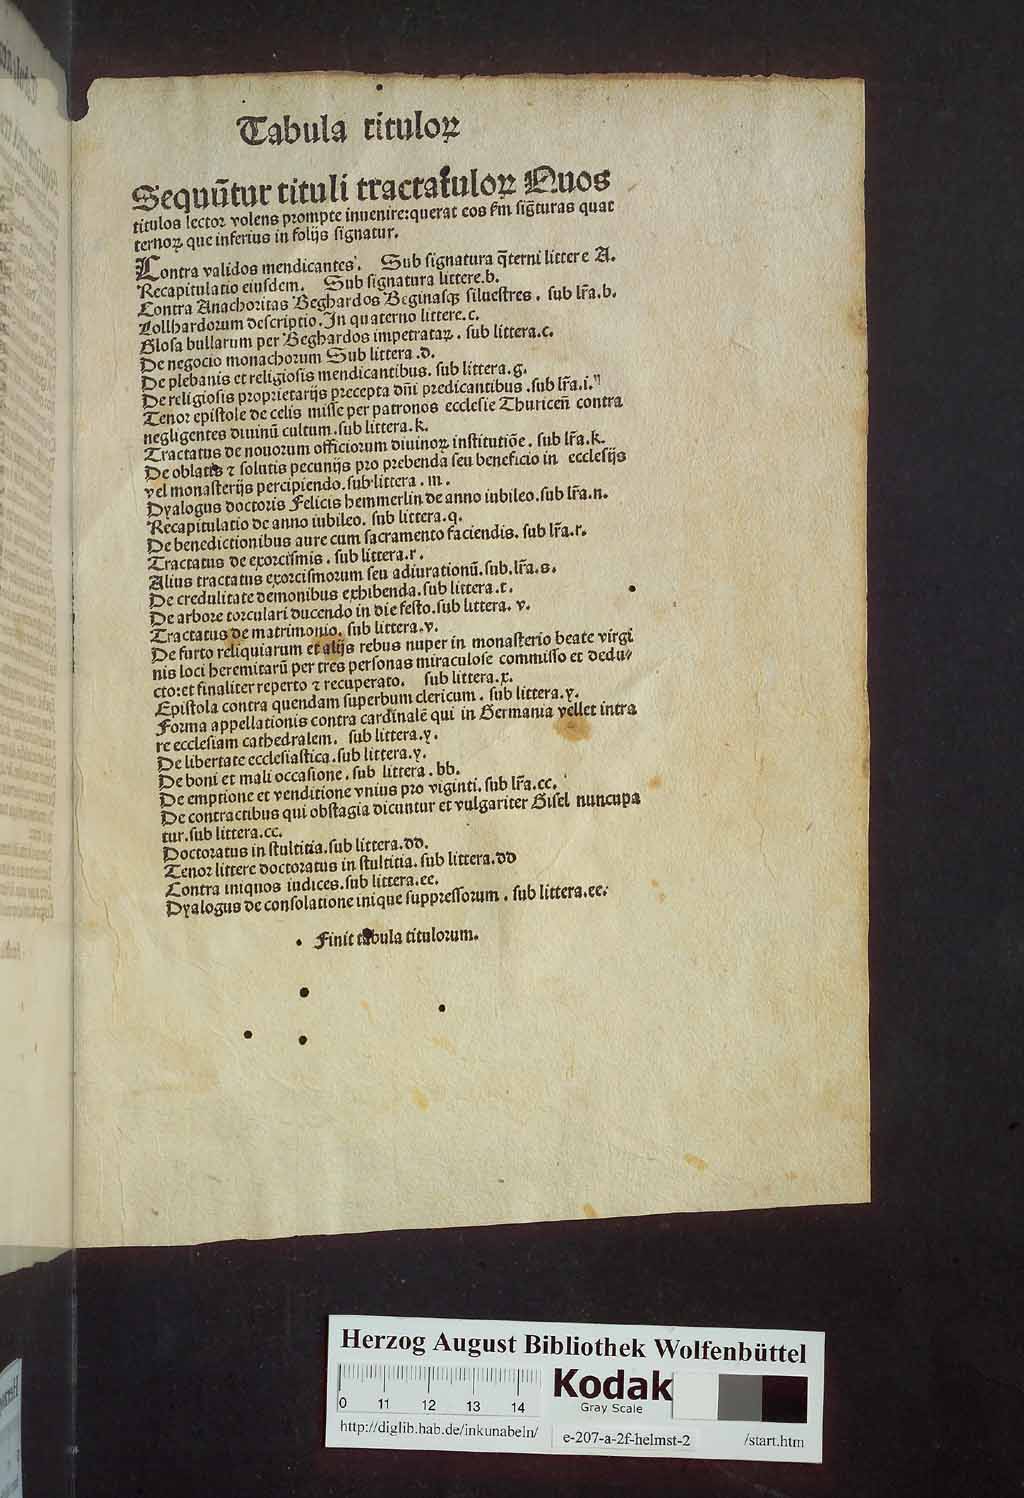 Tabula tituloꝝ
Sequūtur tituli tractatuloꝝ Quos
titulos lector volens prompte inuenire:querat eos ẜm sig̅turas quat
ternoꝝ que inferius in folijs signatur.
Contra validos mendicantes. Sub signatura q̄terni littere A.
Recapitulatio eiusdem. Sub signatura littere.b.
Contra Anachoritas Beghardos Beginasqꝫ siluestres. sub lr̄a.b.
Lollhardorum descriptio. In quaterno littere.c.
Glosa bullarum per Beghardos impetrataꝝ. sub littera.c.
De negocio monachorum Sub littera.d.
De plebanis et religiosis mendicantibus. sub littera.g.
De religiosis proprietarijs precepta dn̄i predicantibus.sub lr̄a.i.
Tenor epistole de celis misse per patronos ecclesie Thuriceñ contra
negligentes diuinū cultum.sub littera.k.
Tractatus de nouorum officiorum diuinoꝝ institutiōe. sub lr̄a.k.
De oblatis ⁊ solutis pecunijs pro prebenda seu beneficio in ecclesijs
vel monasterijs percipiendo.sub littera.m.
Dyalogus doctoris Felicis hemmerlin de anno iubileo.sub lr̄a.n.
Recapitulatio de anno iubileo. sub littera.q.
De benedictionibus aure cum sacramento faciendis. sub lr̄a.r.
Tractatus de exorcismis. sub littera.r.
Alius tractatus exorcismorum seu adiurationū.sub.lr̄a.s.
De credulitate demonibus exhibenda.sub littera.t.
De arbore torculari ducendo in die festo.sub littera. v.
Tractatus de matrimonio. sub littera.v.
De furto reliquiarum et alijs rebus nuper in monasterio beate virgi
nis loci heremitarū per tres personas miraculose commisso et dedu⸗
cto:et finaliter reperto ⁊ recuperato. sub littera.x.
Epistola contra quendam superbum clericum. sub littera.y.
Forma appellationis contra cardinalē qui in Germania vellet intra
re ecclesiam cathedralem. sub littera.y.
De libertate ecclesiastica.sub littera.y.
De boni et mali occasione. sub littera.bb.
De emptione et venditione vnius pro viginti. sub lr̄a.cc.
De contractibus qui obstagia dicuntur et vulgariter Gisel nuncupa
tur.sub littera.cc.
Doctoratus in stultitia.sub littera.dd.
Tenor littere doctoratus in stultitia.sub littera.dd
Contra iniquos iudices.sub littera.ee.
Dyalogus de consolatione inique suppressorum. sub littera.ee.
Finit tabula titulorum.
Herzog August Bibliothek Wolfenbüttel
0 11 12 13 14
Kodak
Gray Scale
http://diglib.hab.de/inkunabeln/ e-207-a-2f-helmst-2 /start.htm